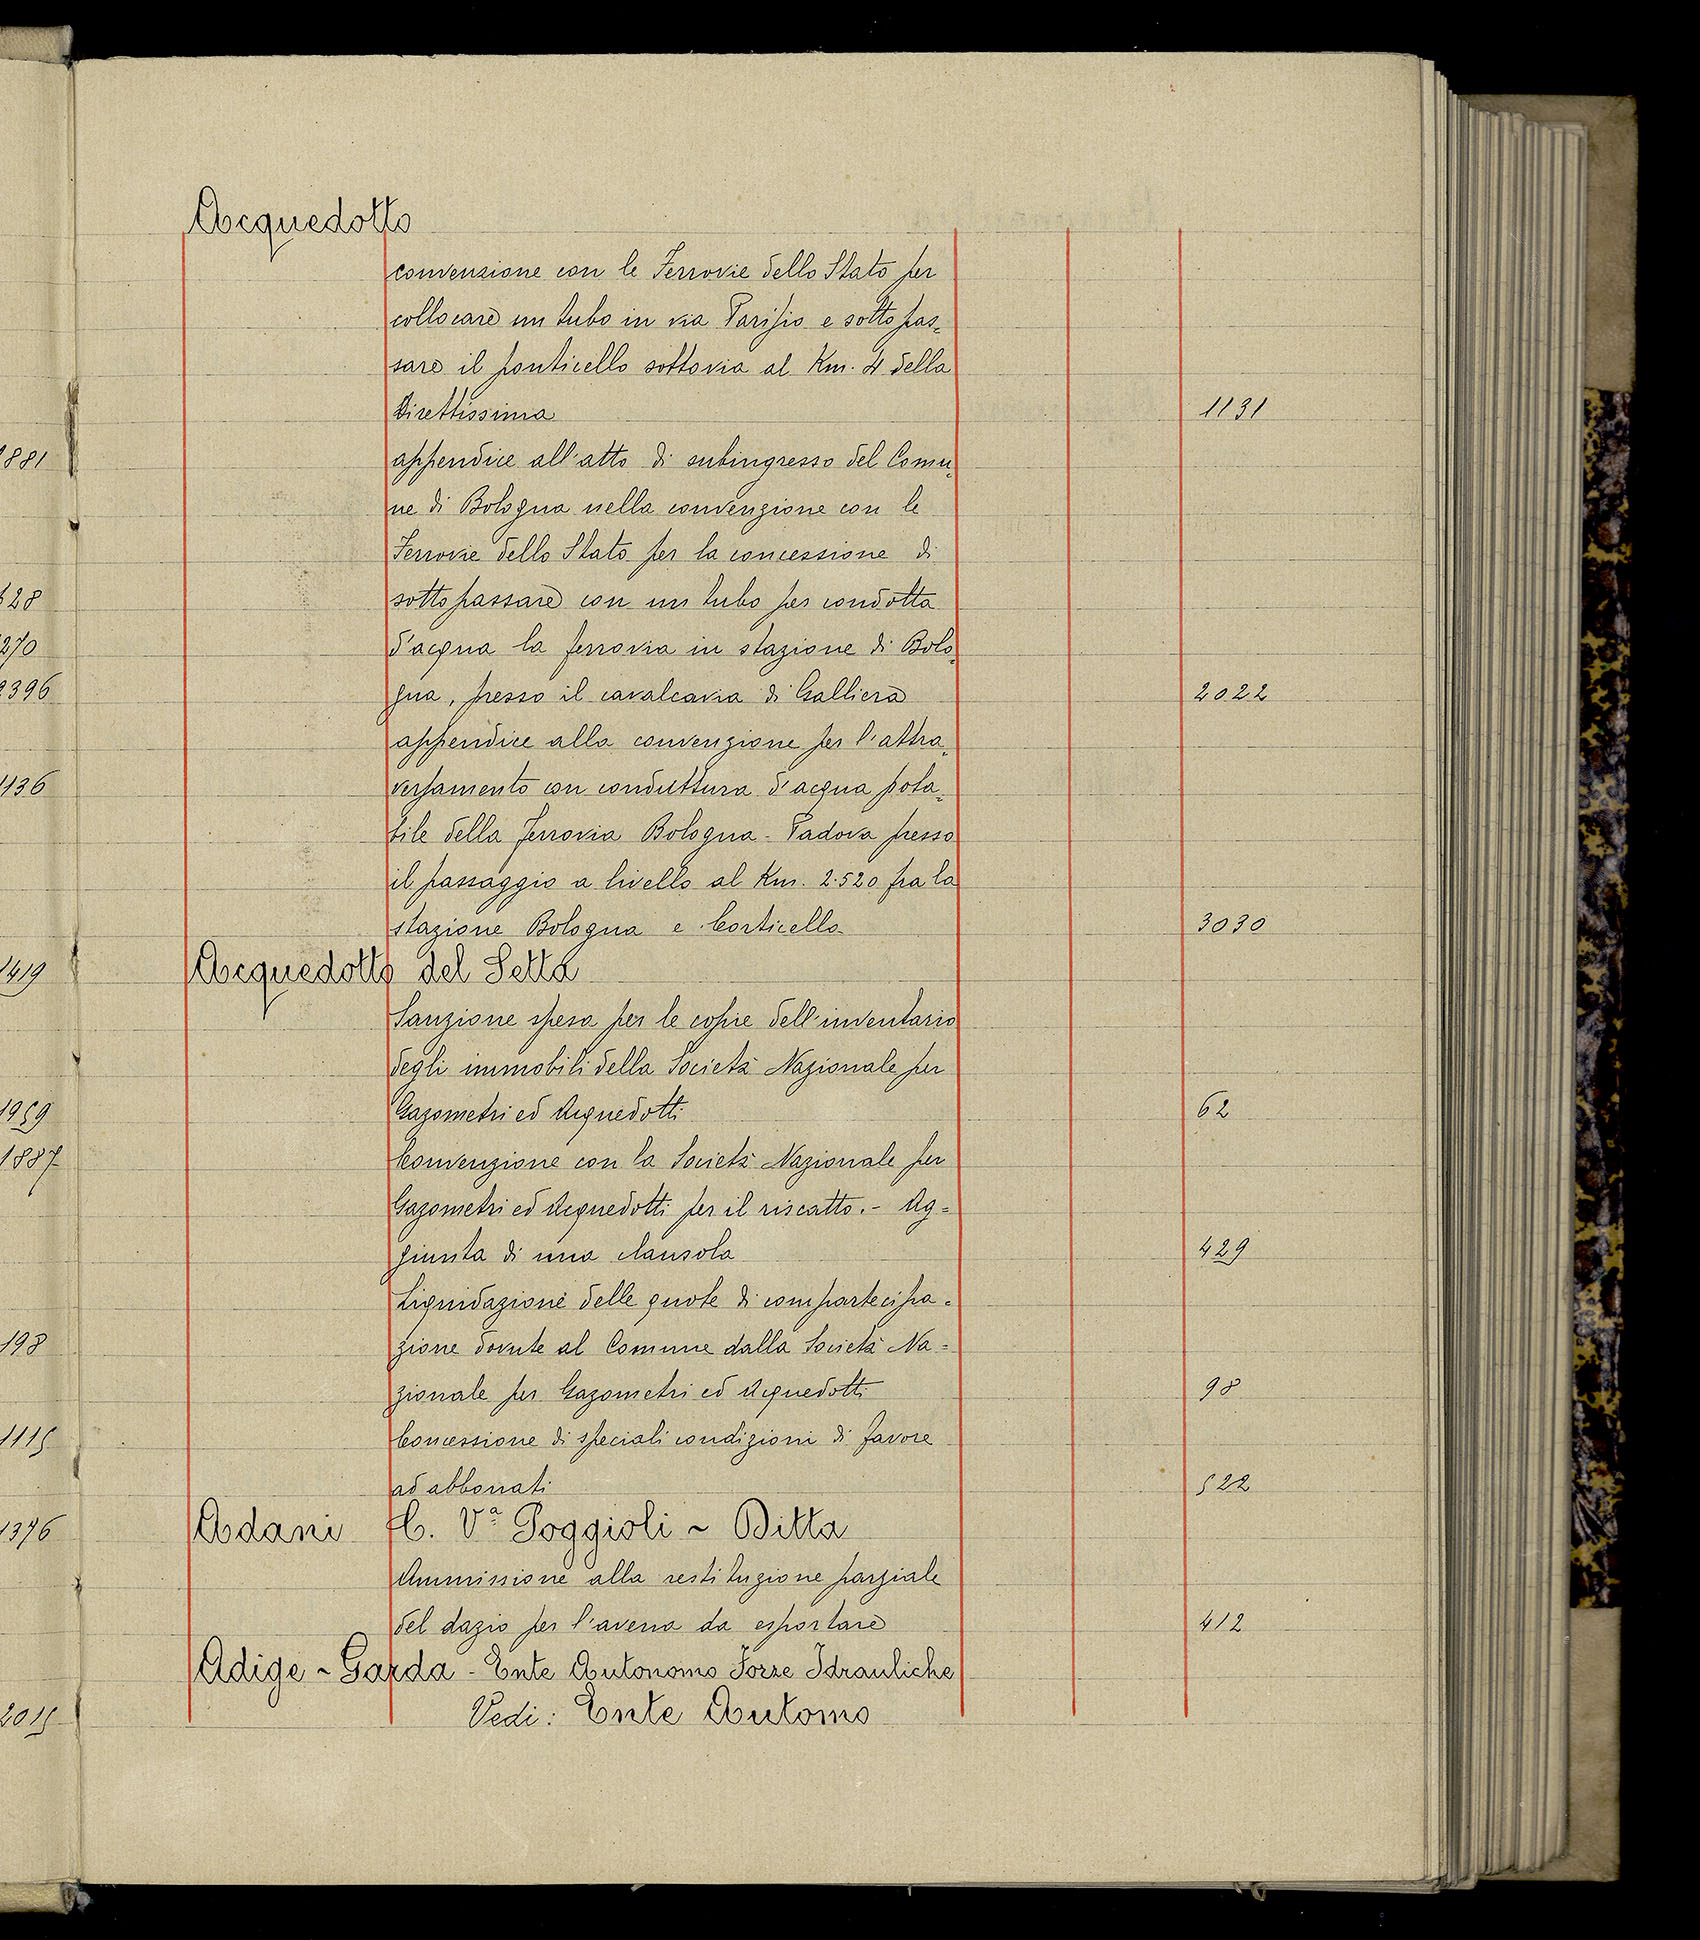 Acquedotto
convenzione con le Ferrovie dello Stato per
collocare un tubo in via Parisio e sottopas=
sare il ponticello sottovia al Km. 4 della
Direttissima 1131
appendice all'atto di subingresso del Comu=
ne di Bologna nella convenzione con le
Ferrovie dello Stato per la concessione di
sottopassare con un tubo per condotta
d'acqua la ferrovia in stazione di Bolo=
gna, presso il cavalcavia di Galliera 2022
appendice alla convenzione per l'attra=
versamento con conduttura d'acqua pota=
bile della ferrovia Bologna - Padova presso
il passaggio a livello al Km. 2.520 fra la
stazione Bologna e Corticella 3030
Acquedotto del Setta
Sanzione spesa per le copie dell'inventario
degli immobili della Società Nazionale per
Gazometri ed Acquedotti 62
Convenzione con la Società Nazionale per
Gazometri ed Acquedotti per il riscatto. - Ag=
giunta di una clausola 429
Liquidazione delle quote di compartecipa=
zione dovute al Comune dalla Società Na=
zionale per Gazometri ed Acquedotti 98
Concessione di speciali condizioni di favore
ad abbonati 522
Adani C. Vª Poggioli ~ Ditta
Ammissione alla restituzione parziale
del dazio per l'avena da esportare 412
Adige ~ Garda - Ente Autonomo Forze Idrauliche
Vedi: Ente Automo
881
628
270
2396
1136
1419
1959
1887
198
1115
1376
2015